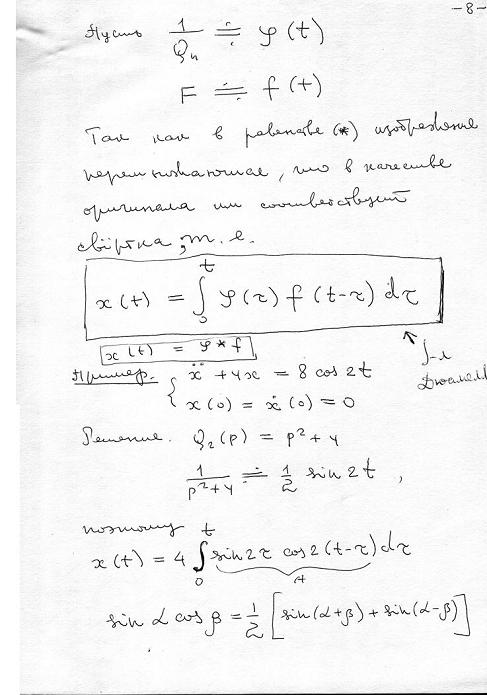 -8-
Пусть 1/Qn ≓ φ(t)
F ≓ f(t)
Так как в равенстве (*) изображение
перемножающиеся, то в качестве
оригинала им соответствует
свёртка, т.е.
x(t) = ∫₀ᵗ φ(τ) f(t-τ) dτ
x(t) = φ * f
∫-л
Дюамеля
Пример. { ẍ + 4x = 8 cos 2t
x(0) = ẋ(0) = 0
Решение. Q₂(p) = p² + 4
1/(p²+4) ≓ 1/2 sin 2t,
поэтому
x(t) = 4 ∫₀ᵗ sin 2τ cos 2(t-τ) dτ
A
sin α cos β = 1/2 [sin(α+β) + sin(α-β)]